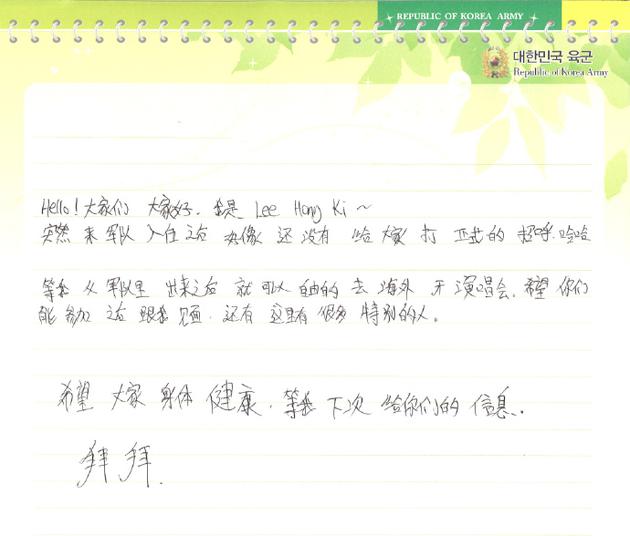 REPUBLIC OF KOREA ARMY
대한민국 육군
Republic of Korea Army
Hello! 大家们 大家好. 我是 Lee Hong Ki ~
突然 来 军队 入住 之后 好像 还没有 给 大家 打 正式的 招呼. 哈哈
等我 从 军队里 出来之后 就 可以 自由的 去 海外 开 演唱会. 希望 你们
能 参加 之后 跟我 见面. 还有 这里有 很多 特别的人。
希望 大家 身体 健康. 等我 下次 给你们的 信息.
拜拜.